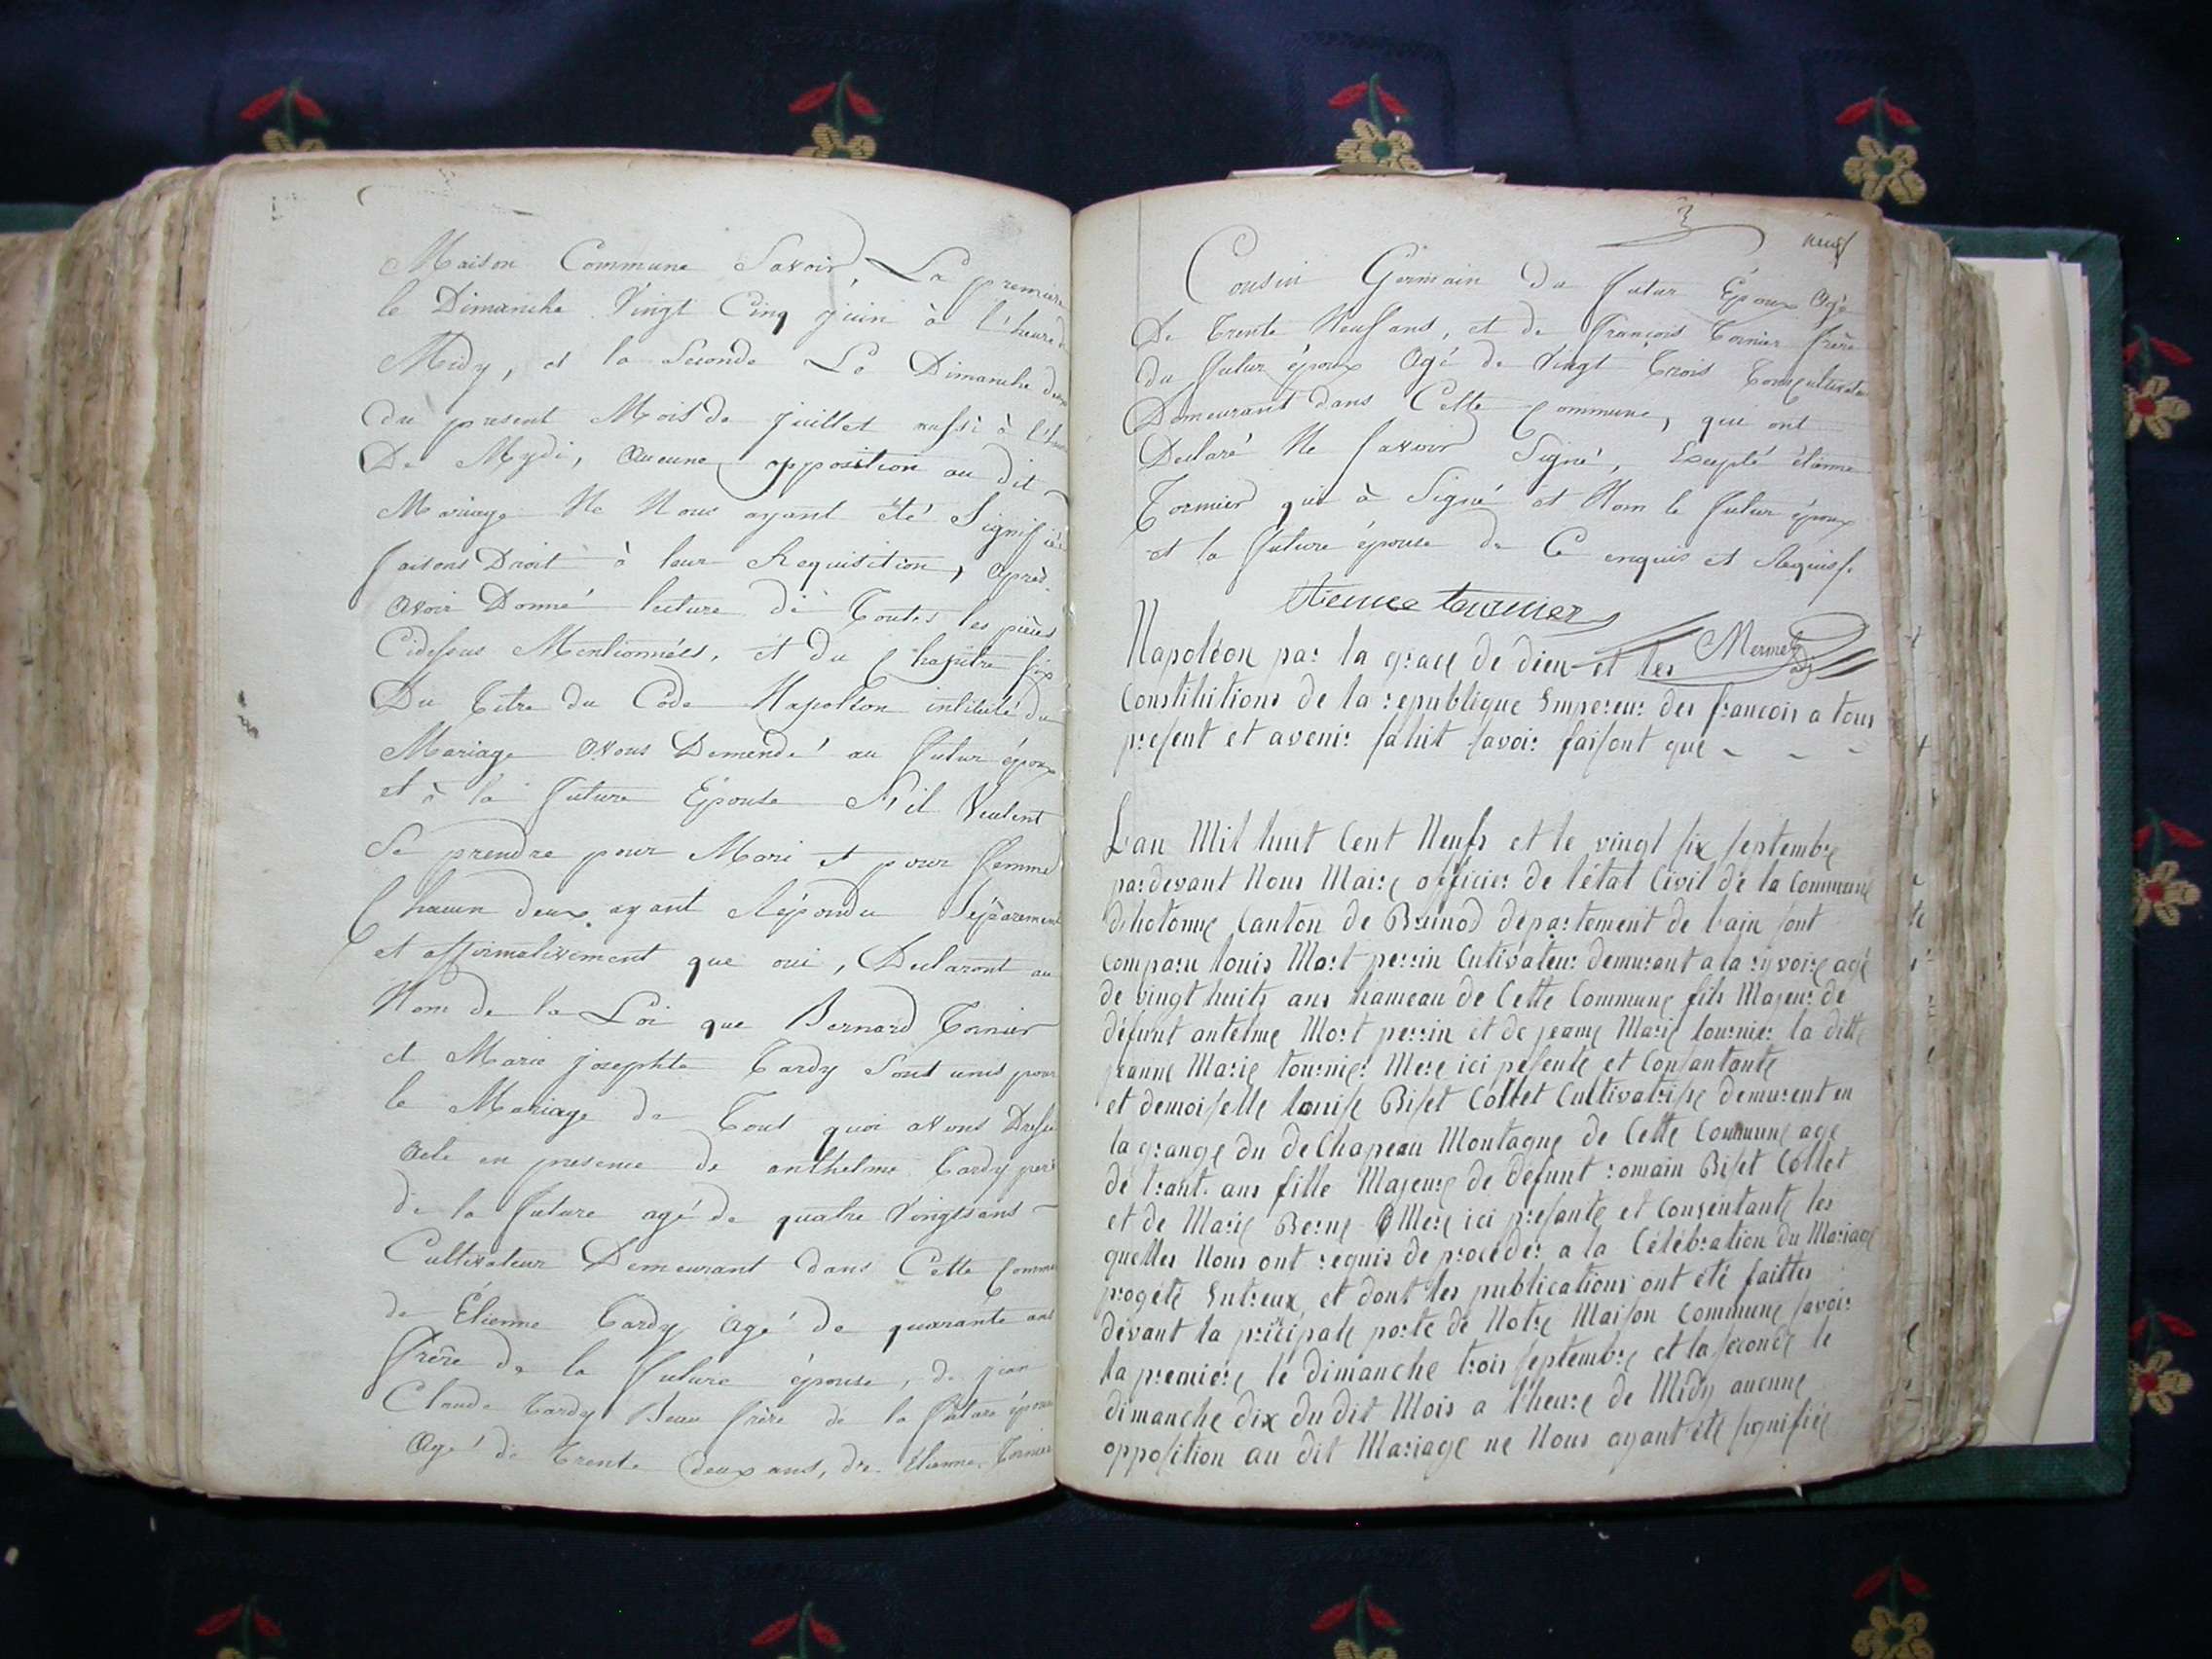 Maison Commune Savoir, La premiere
le Dimanche Vingt Cinq juin à l'heure de
Midy, et la Seconde Le Dimanche deux
du present Mois de juillet aussi à l'heure
De Mydi, aucune opposition au dit
Mariage Ne Nous ayant été Signifiée
faisons Droit à leur Requisition, après
avoir Donné lecture de Toutes les pièces
Cidessus Mentionnées, et du Chapitre six
Du Titre du Code Napoléon intitulé du
Mariage avons Demendé au futur époux
et à la future Epouse S'il Veulent
Se prendre pour Mari et pour femme
Chacun deux ayant Répondu Séparement
et affirmativement que oui, Declaront au
Nom de la Loi que Bernard Tornier
et Marie josephte Tardy Sont unis pour
le Mariage de Tout quoi avons Dressé
acte en presence de anthelme Tardy pere
de la future agé de quatre Vingts ans
Cultivateur Demeurant dans Cette Commune
de Étienne Tardy agé de quarante ans
frère de la future épouse, de jean
Claude Tardy Beau frère de la future épouse
agé de Trente deux ans, de Étienne Tornier
3
neuf
Cousin Germain du futur Époux agé
De Trente Neuf ans, et de françois Tornier frère
du futur époux agé de Vingt Trois Tous cultivateurs
Demeurant dans Cette Commune, qui ont
Declaré Ne savoir Signé, Excepté étienne
Tornier qui à Signé et Nom le futur époux
et la future épouse de Ce enquis et Requis.
Etienne tournier
Mermet
Napoléon par la grace de dieu et les
Constitutions de la republique Empereur des francois a tous
present et avenir salut savoir faisont que - - -
Lan Mil huit Cent Neufs et le vingt six septembre
pardevant Nous Maire officier de l'état Civil de la Commune
dhotonne Canton de Brenod département de lain sont
comparu louis Mort perrin Cutivateur demurant a la ryvoire agé
de vingt huits ans hameau de Cette Commune fils Majeur de
défunt antelme Mort perrin et de jeanne Marie tournier la ditte
jeanne Marie tournier Mere ici pesente et Consantante
et demoiselle louise Biset Collet Cultivatrisse demurent en
la grange du de Chapeau Montagne de Cette Commune age
de trant. ans fille Majeure de défunt romain Biset Collet
et de Marie Berne Mere ici presante et Consentante les
quelles Nous ont requis de procéder a la Célébration du Mariage
progété Entreux et dont les publications ont été faittes
devant la pricipale porte de Notre Maison Commune savoir
la premiere le dimanche trois septembre et la seconde le
dimanche dix du dit Mois a l'heure de Midy aucune
opposition au dit Mariage ne Nous ayant été signifiée